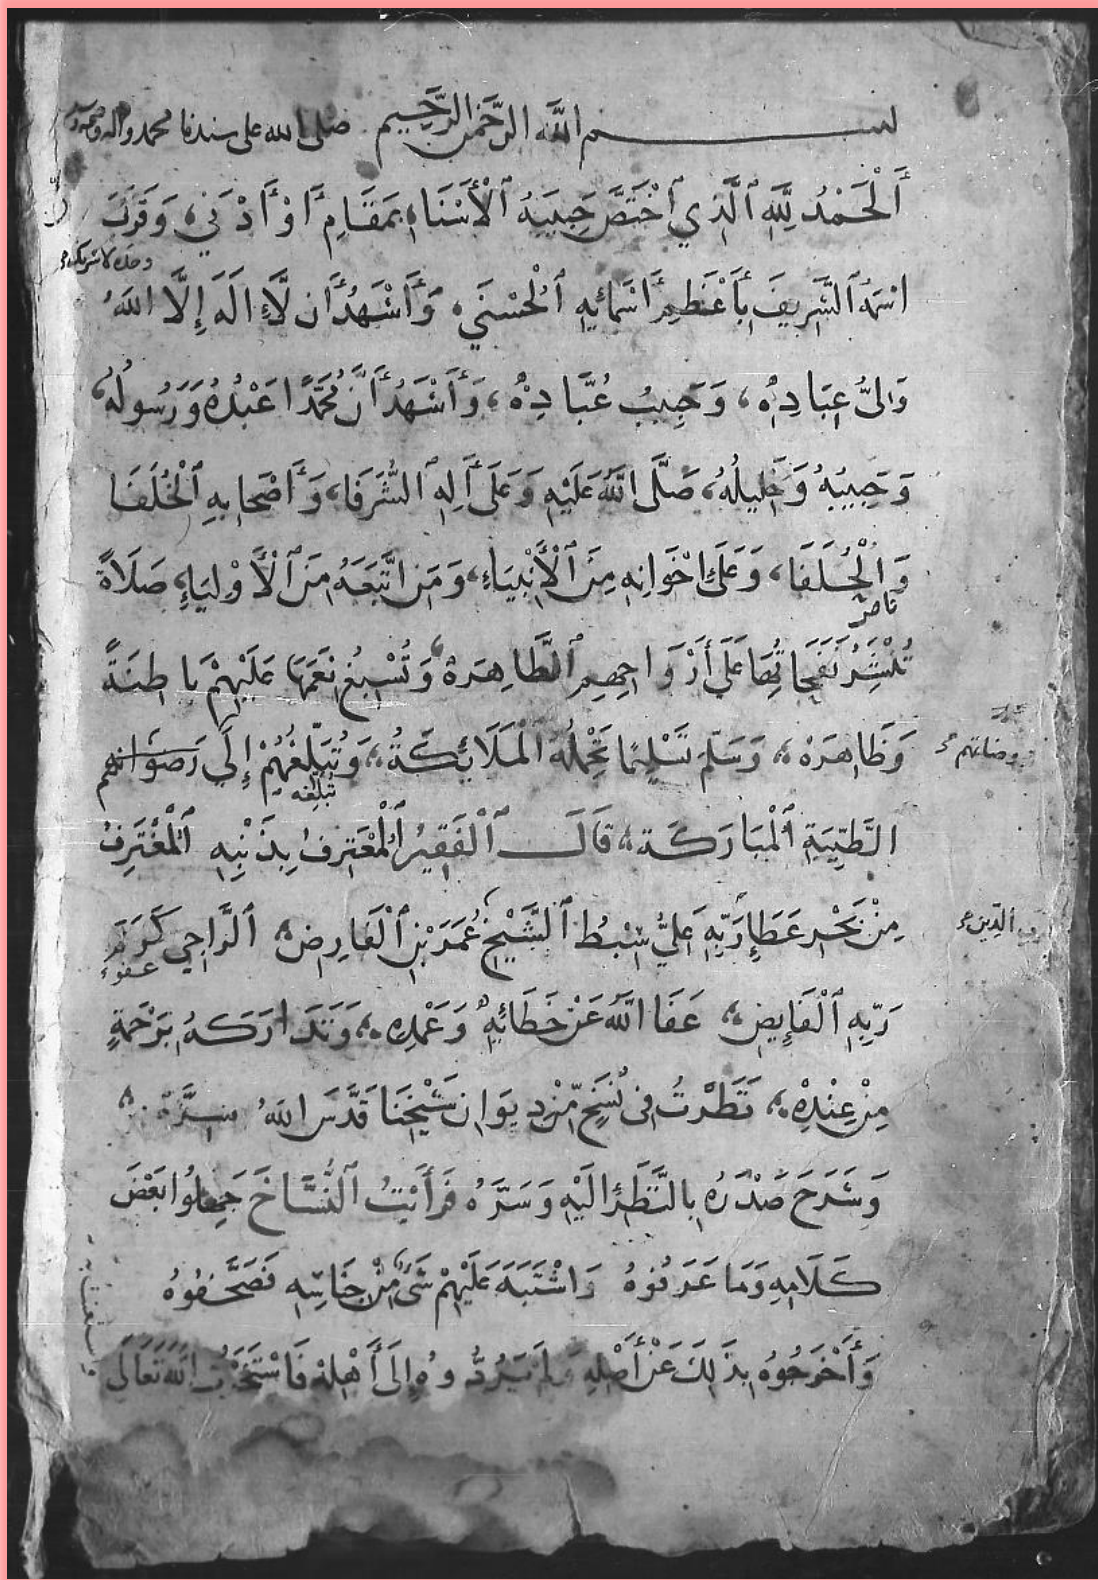 بسم الله الرَّحمن الرَّحِيم صلى الله على سيدنا محمد وآله وصحبه
أَلْحَمْدُ لِلَّهِ ٱلَّذِي ٱخْتَصَّ حَبِيبَهُ ٱلْأَسْنَا، بِمَقَامِ أَوْ أَدْنَى، وَقَرَنَ
وحده لا شريك له
اسْمَهُ ٱلشَّرِيفَ بِأَعْظَمِ أَسْمَائِهِ ٱلْحُسْنَى، وَأَشْهَدُ أَن لَّا إِلَهَ إِلَّا اللهُ
وَلِيُّ عِبَادِهْ، وَحَبِيبُ عُبَّادِهْ، وَأَشْهَدُ أَنَّ مُحَمَّدًا عَبْدُهُ وَرَسُولُهُ،
وَحَبِيبُهُ وَخَلِيلُهُ، صَلَّى اللَّهُ عَلَيْهِ وَعَلَى أَلِهِ ٱلشُّرَفَا، وَأَصْحَابِهِ ٱلْخُلَفَا
وَٱلْحُلَفَا، وَعَلَى اخْوَانِهِ مِنَ ٱلْأَنْبِيَاءِ، وَمَنِ اتَّبَعَهُ مِنَ ٱلْأَوْلِيَاءِ، صَلَاةً
تُنْشَرُ نَفَحَاتُهَا عَلَى أَرْوَاحِهِمِ ٱلطَّاهِرَهْ، وَتُسْبِغُ نِعَمَهَا عَلَيْهِمْ بَاطِنَةً
وَظَاهِرَهْ، وَسَلَّمَ تَسْلِيمًا تَحْمِلُهُ الْمَلَائِكَةُ، وَتُبَلِّغُهُمْ إِلَى رَضَوَاتِهِم
روضاتهم
تبلغه
الطَّيِّبَةِ ٱلْمُبَارَكَة، قَالَ ٱلْفَقِيرُ ٱلْمُعْتَرِفُ بِذَنْبِهِ ٱلْمُغْتَرِفُ
مِنْ بَحْرِ عَطَاءِ رَبِّهِ عَلِيُّ سِبْطُ ٱلشَّيْخِ عُمَرَ بْنِ ٱلْفَارِضِ، ٱلرَّاجِي كَرَمَ
الدين
عفو
رَبِّهِ ٱلْفَايِضِ، عَفَا اللَّهُ عَنْ خَطَائِهِ وَعَمْدِهِ، وَتَدَارَكَهُ بِرَحْمَةٍ
مِنْ عِنْدِهْ، نَظَرْتُ فِى نُسَخٍ مِّنْ دِيوَانِ شَيْخِنَا قَدَّسَ اللهُ سِرَّهْ،
وَشَرَحَ صَدْرَهُ بِالنَّظَرِ الَيْهِ وَسَرَّهُ فَرَأَيْتُ ٱلنُّسَّاخَ جَهِلُوا بَعْضَ
كَلَامِهِ وَمَا عَرَفُوهُ وَاشْتَبَهَ عَلَيْهِمْ شَىْءٌ مِّنْ جِنَاسِهِ فَصَحَّفُوهُ
وَأَخْرَجُوهُ بِذَلِكَ عَنْ أَصْلِهِ وَلَمْ يَرُدُّوهُ إِلَى أَهْلِهْ فَاسْتَخَرْتُ اللَّهَ تَعَالَى